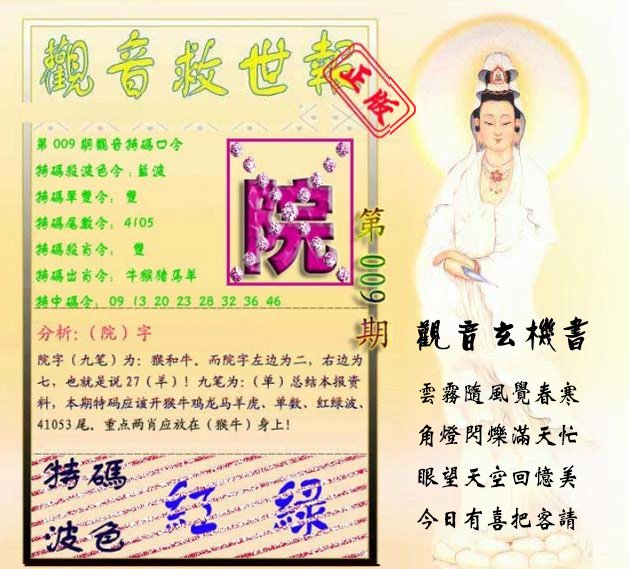 觀音救世報
正版
第009期觀音特碼口令
特碼殺波色令：藍波
特碼單雙令： 雙
特碼尾數令： 4105
特碼殺肖令： 雙
特碼出肖令： 牛猴猪馬羊
特中碼令： 09 13 20 23 28 32 36 46
院
第009期
分析:（院）字
院字（九笔）为：猴和牛。而院字左边为二，右边为
七，也就是说27（羊）！九笔为：（单）总结本报资
料，本期特码应该开猴牛鸡龙马羊虎、单数、红绿波、
41053尾。重点两肖应放在（猴牛）身上！
特碼
波色
紅 綠
觀音玄機書
雲霧隨風覺春寒
角燈閃爍滿天忙
眼望天空回憶美
今日有喜把客請